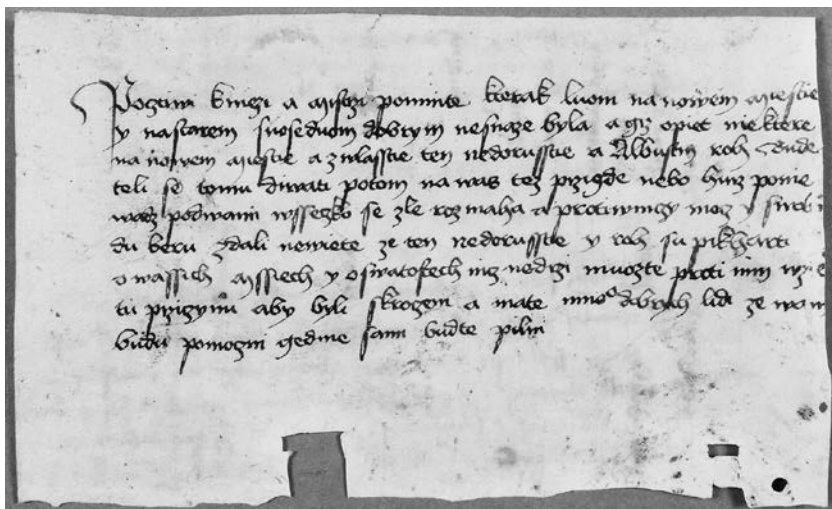 Pocztiwi kniezi a mistrzi pomnite kterak luom na nowem miestie
y na starem suoseduom dobrym nesnaze byla a giz opiet niektere
na nowem miestie a zwlasstie ten nedorusstie a Albustin roh bude
teli se tomu diwati potom na was tez przigde nebo huorz ponie
wadz pod wami wssezko se zle rozmaha a protiwnizy moz y swobo
du beru zdali newiete ze ten nedorusstie y roh su pikharti
o wassich mssiech y o swatostech nicz nedrzi muozte proti nim
tu przizynu aby byli skrozeni a mate mnoº dobrych lidi ze wam
budu pomozni gedine sami budte pilni